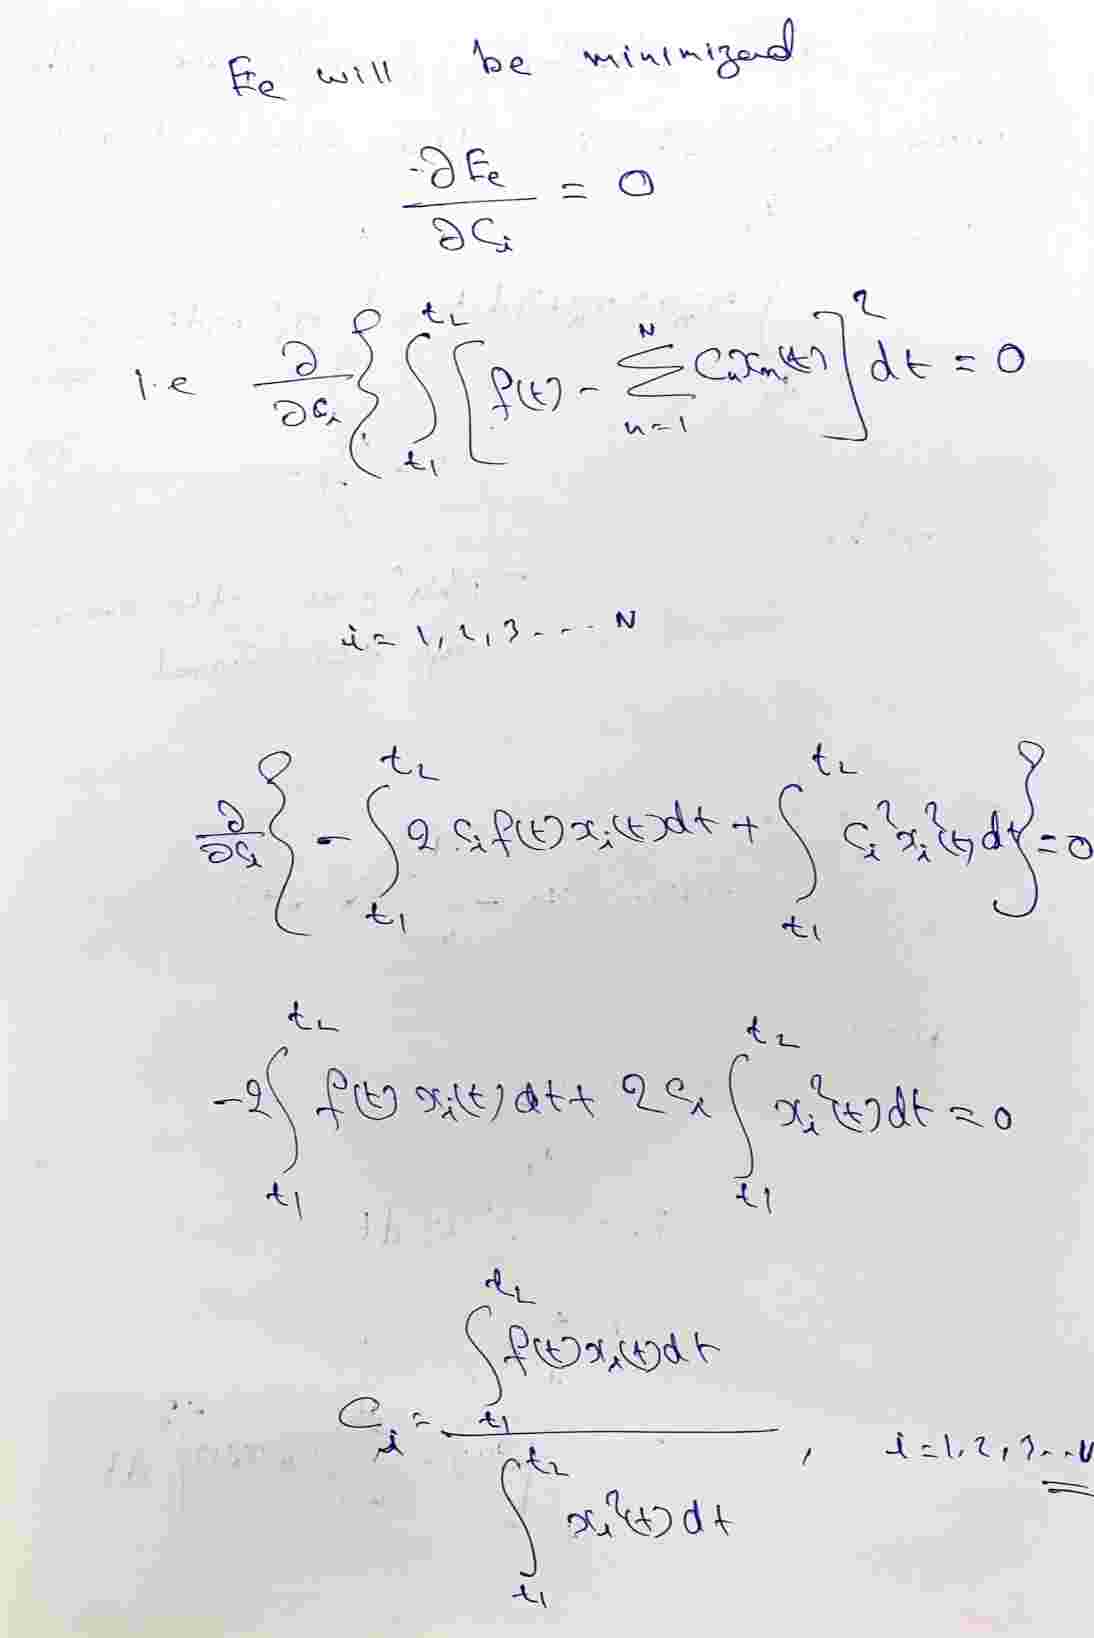 Ee will be minimized
∂Ee/∂Ci = 0
i.e ∂/∂Ci { ∫_{t1}^{t2} [ f(t) - ∑_{n=1}^{N} Cn xn(t) ]² dt = 0
i = 1, 2, 3 .... N
∂/∂Ci { - ∫_{t1}^{t2} 2 Ci f(t) xi(t) dt + ∫_{t1}^{t2} Ci² xi²(t) dt } = 0
-2 ∫_{t1}^{t2} f(t) xi(t) dt + 2 Ci ∫_{t1}^{t2} xi²(t) dt = 0
Ci = ∫_{t1}^{t2} f(t) xi(t) dt / ∫_{t1}^{t2} xi²(t) dt , i = 1, 2, 3 ... N